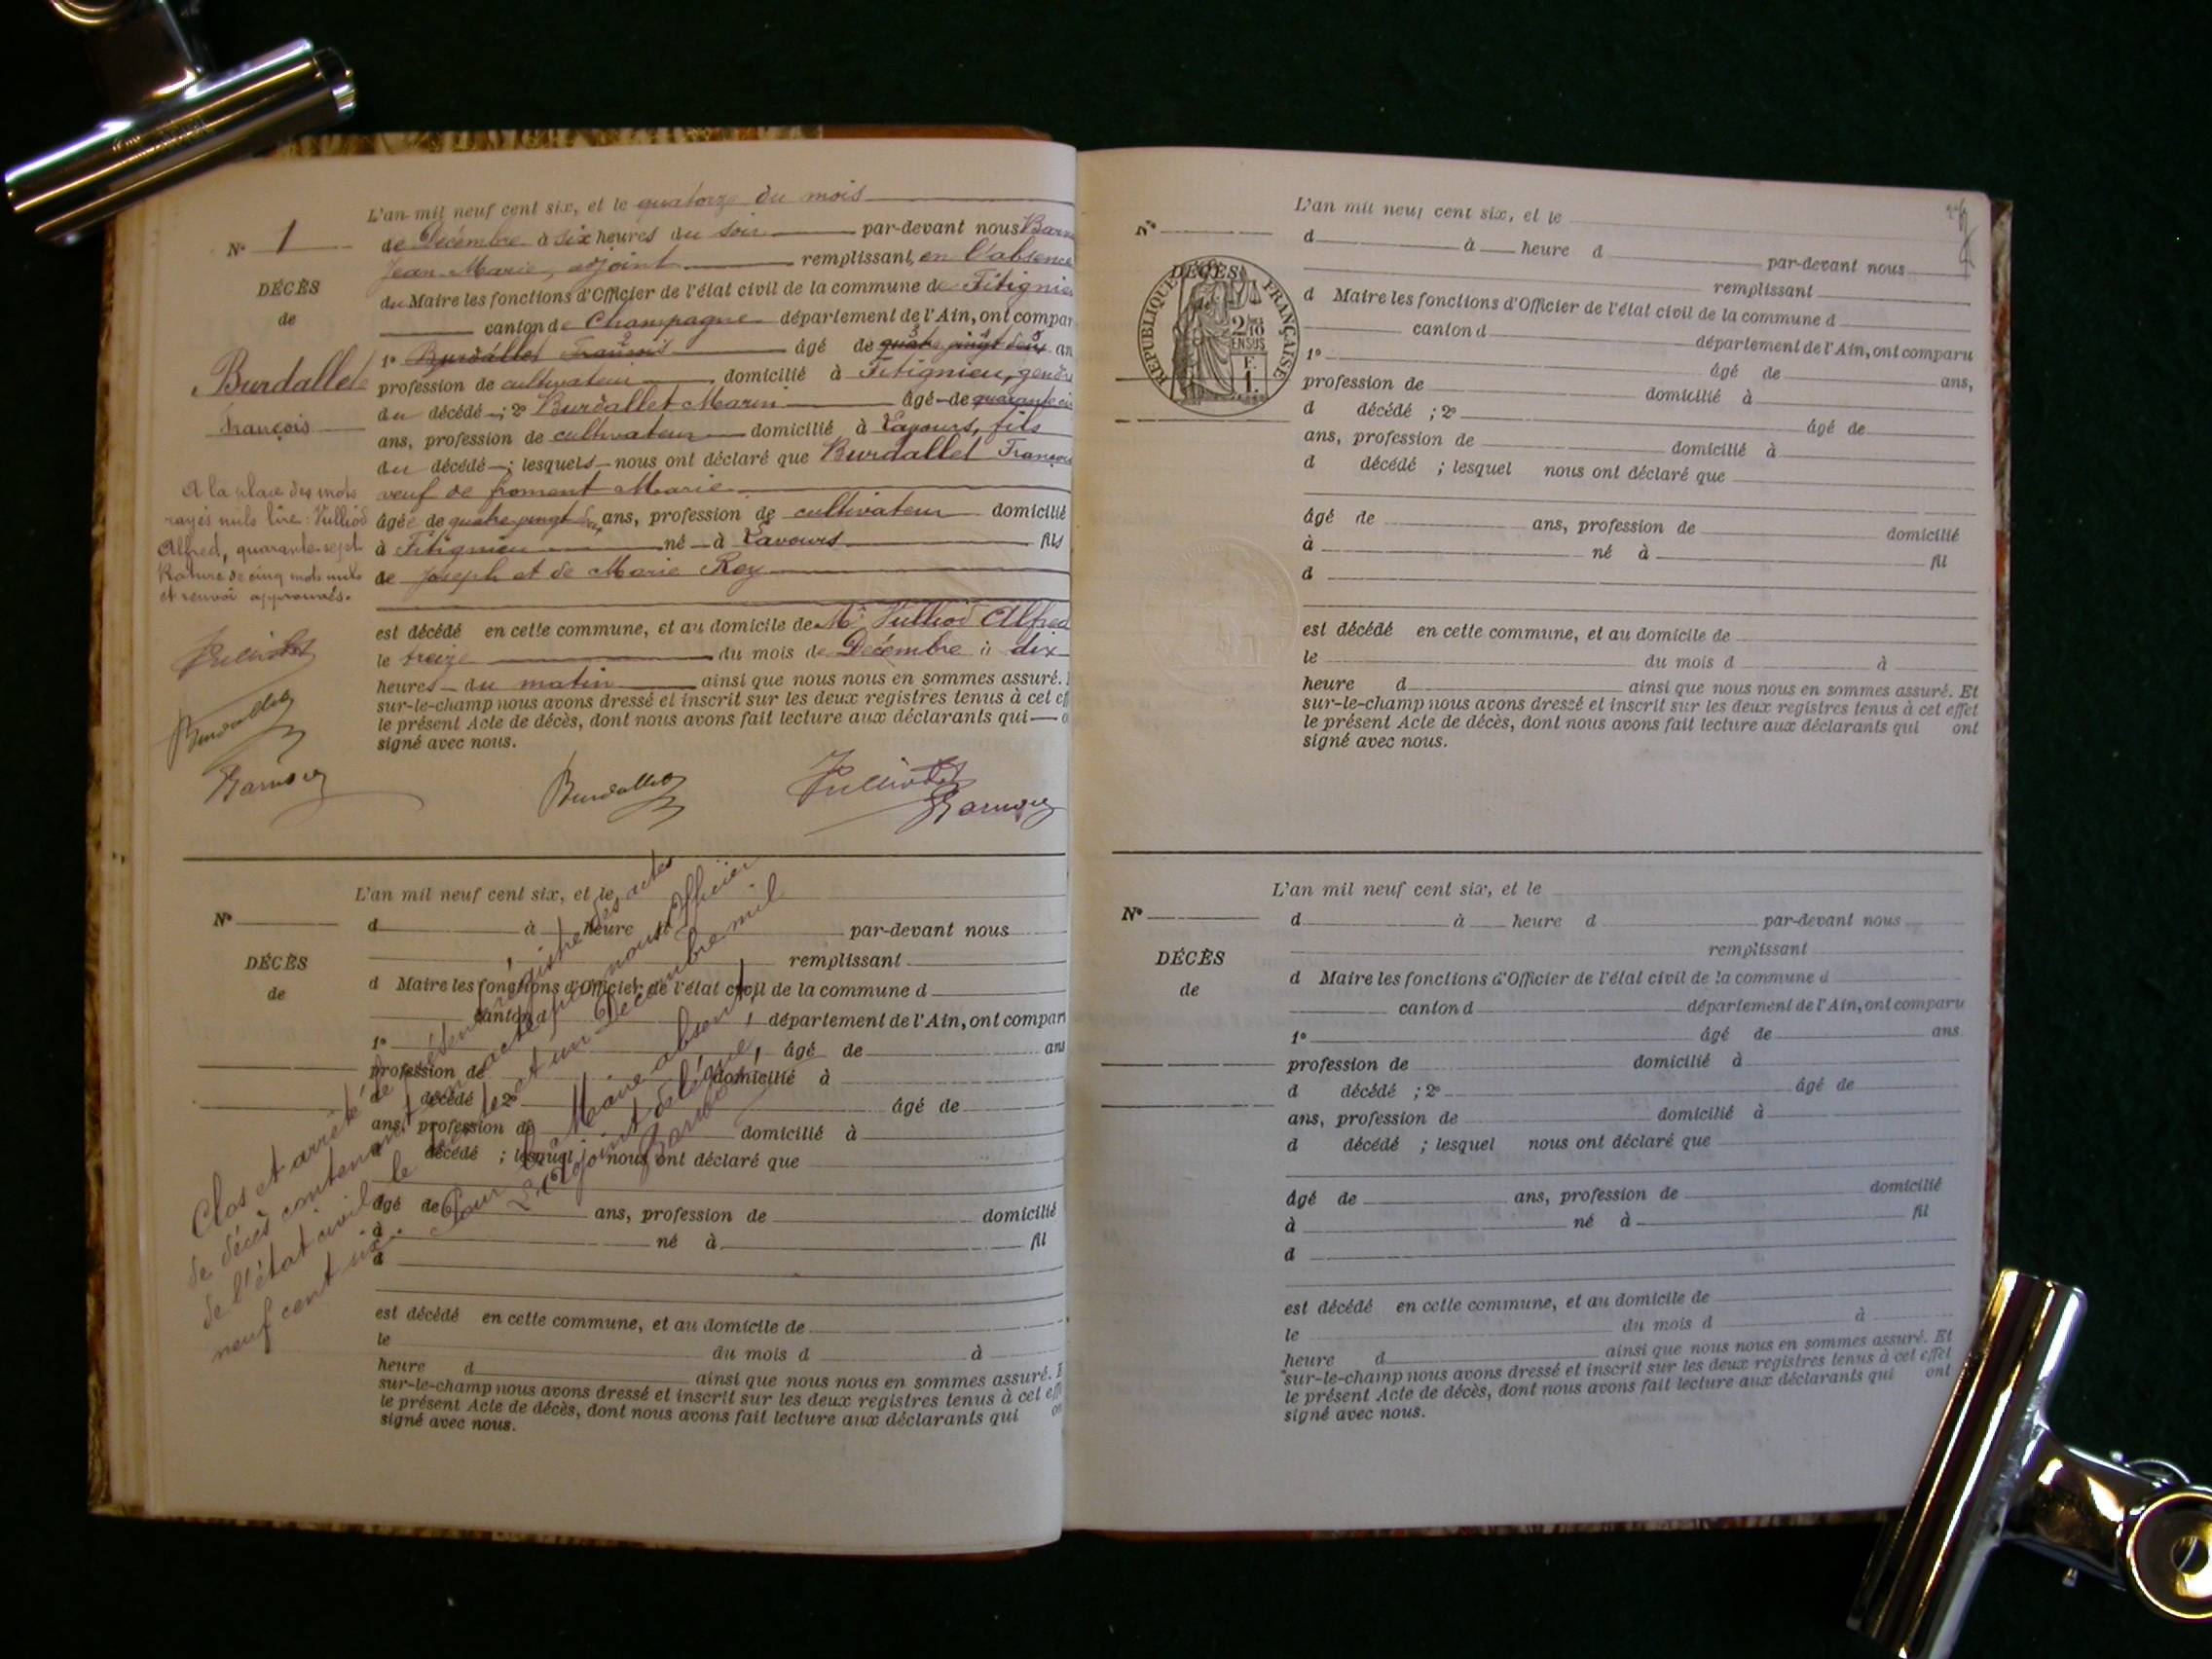 L'an mil neuf cent six, et le quatorze du mois
N° 1
de Décembre à six heures du soir par-devant nous
Jean Marie, adjoint remplissant, en l'absence
DÉCÈS
du Maire les fonctions d'Officier de l'état civil de la commune de Fitignie
de
canton de Champagne département de l'Ain, ont compar
1° Burdallet François âgé de quatre vingt deux an
Burdallet
profession de cultivateur domicilié à Fitignieu, gendre
François
du décédé ; 2° Burdallet Marin âgé de quarante
ans, profession de cultivateur domicilié à Lavours, fils
du décédé ; lesquels nous ont déclaré que Burdallet François
veuf de froment Marie
âgé de quatre vingt ans, profession de cultivateur domicilié
à Fitignieu né à Lavours fils
de Joseph et de Marie Rey
A la place des mots
rayés nuls lire : Vulliod
Alfred, quarante-sept
Rature de cinq mots nuls
et renvoi approuvés.
est décédé en cette commune, et au domicile de Mr Vulliod Alfred
le treize du mois de Décembre à dix
heures du matin ainsi que nous nous en sommes assuré.
sur-le-champ nous avons dressé et inscrit sur les deux registres tenus à cet eff
le présent Acte de décès, dont nous avons fait lecture aux déclarants qui o
signé avec nous.
Burdallet
Burdallet
L'an mil neuf cent six, et le
N°
d à heure d par-devant nous
remplissant
DÉCÈS
d Maire les fonctions d'Officier de l'état civil de la commune d
de
canton d département de l'Ain, ont compar
1° âgé de ans
profession de domicilié à
d décédé ; 2° âgé de
ans, profession de domicilié à
d décédé ; lesquel nous ont déclaré que
âgé de ans, profession de domicilié
à né à fil
d
est décédé en cette commune, et au domicile de
le du mois d à
heure d ainsi que nous nous en sommes assuré. E
sur-le-champ nous avons dressé et inscrit sur les deux registres tenus à cet eff
le présent Acte de décès, dont nous avons fait lecture aux déclarants qui on
signé avec nous.
Clos et arrêté le présent registre des actes
de décès contenant un acte par nous Officier
de l'état civil le trente et un Décembre mil
neuf cent six. Pour le Maire absent,
L'Adjoint délégué,
L'an mil neuf cent six, et le
N°
d à heure d par-devant nous
remplissant
DÉCÈS
RÉPUBLIQUE FRANÇAISE
2/10 EN SUS
E.
1.
d Maire les fonctions d'Officier de l'état civil de la commune d
canton d département de l'Ain, ont comparu
1° âgé de ans,
profession de domicilié à
d décédé ; 2° âgé de
ans, profession de domicilié à
d décédé ; lesquel nous ont déclaré que
âgé de ans, profession de domicilié
à né à fil
d
est décédé en cette commune, et au domicile de
le du mois d à
heure d ainsi que nous nous en sommes assuré. Et
sur-le-champ nous avons dressé et inscrit sur les deux registres tenus à cet effet
le présent Acte de décès, dont nous avons fait lecture aux déclarants qui ont
signé avec nous.
L'an mil neuf cent six, et le
N°
d à heure d par-devant nous
remplissant
DÉCÈS
d Maire les fonctions d'Officier de l'état civil de la commune d
de
canton d département de l'Ain, ont comparu
1° âgé de ans
profession de domicilié à
d décédé ; 2° âgé de
ans, profession de domicilié à
d décédé ; lesquel nous ont déclaré que
âgé de ans, profession de domicilié
à né à fil
d
est décédé en cette commune, et au domicile de
le du mois d à
heure d ainsi que nous nous en sommes assuré. Et
sur-le-champ nous avons dressé et inscrit sur les deux registres tenus à cet effet
le présent Acte de décès, dont nous avons fait lecture aux déclarants qui ont
signé avec nous.